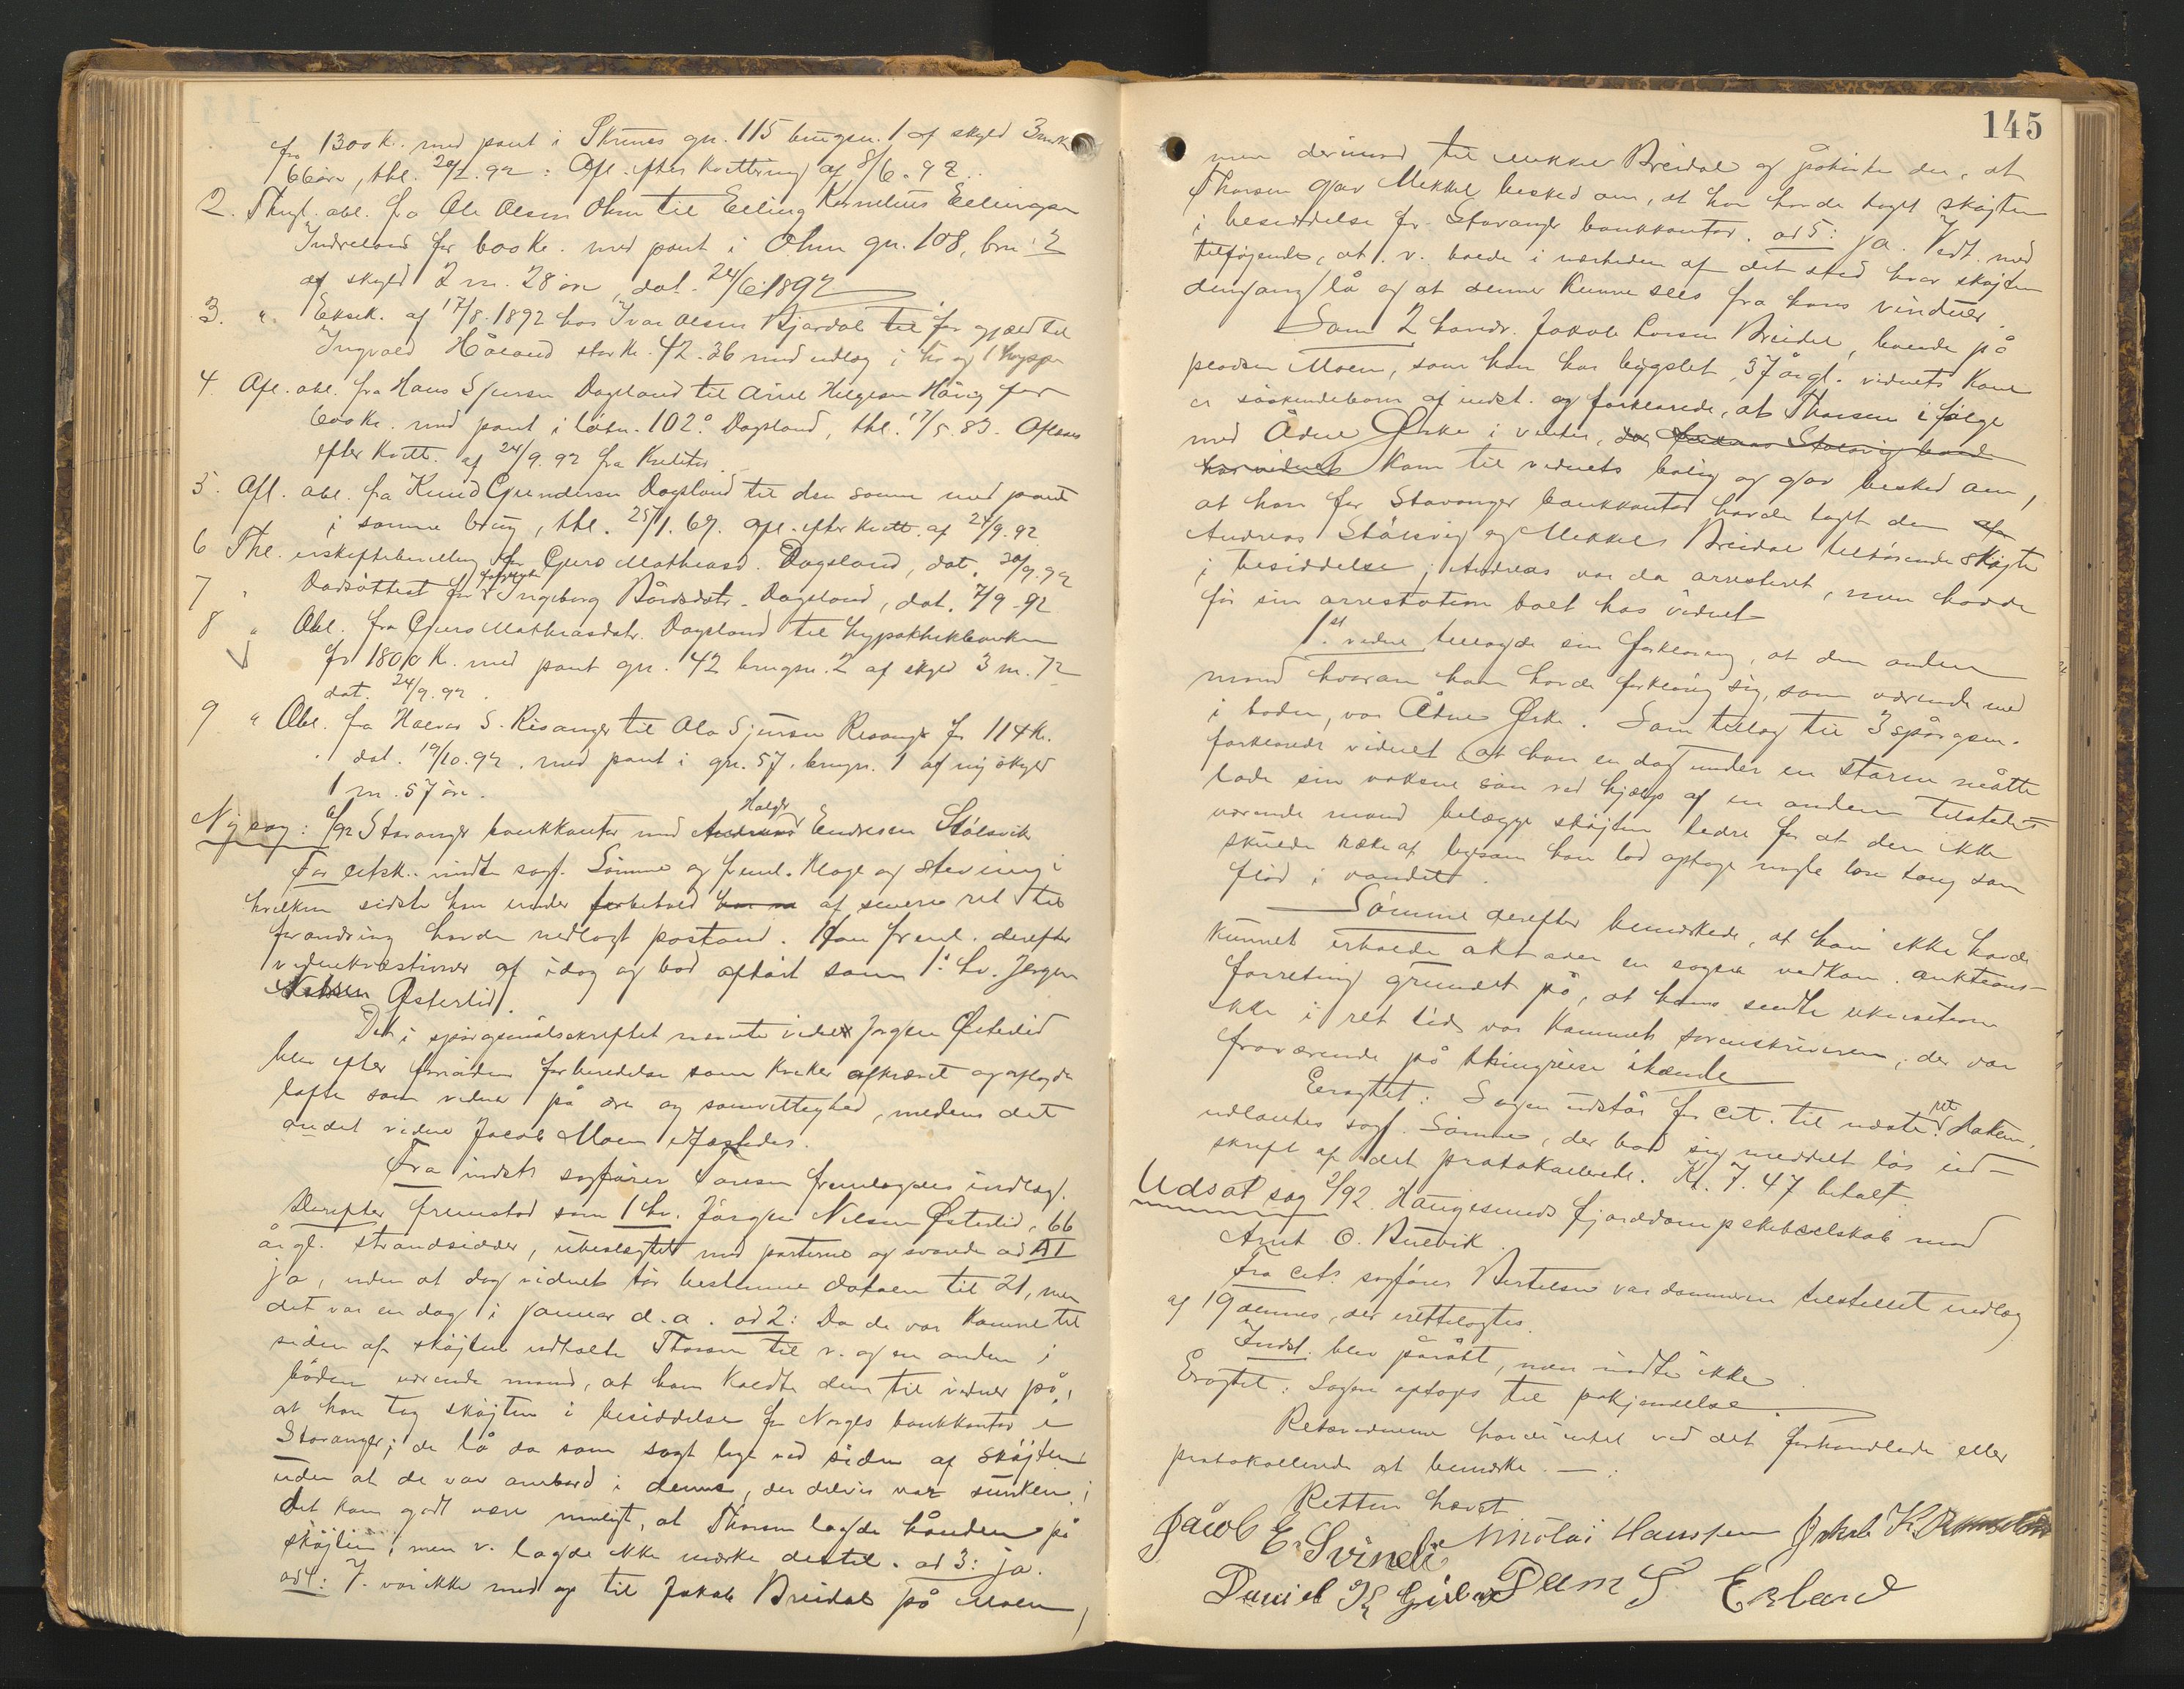 for 1300 k. med pant i Skrunes gn. 115 brugsn. 1 af skyld 3 mark
66 øre, thl. 29/2.92: Afl. efter kvittering af 8/6.92.
2. Thngl. obl. fra Ole Olsen Ohm til Elling Kornelius Ellingsen
Indreland for 600 kr. med pant i Ohm gn. 108, brn. 2
af skyld 2 m. 28 øre, dat. 24/6 1892
3. " Eksek. af 17/8.1892 hos Ivar Olsen Bjordal til for gjæld til
Ingvald Håland stor kr. 42.36 med udlæg i ko og 1 hoppe
4. Afl. obl. fra Hans Sjursen Dagsland til Arne Helgesen Håvig for
600 kr. med pant i løbn. 102a Dagsland, thl. 17/5.83. Aflæses
efter kvitt. af 24/9.92 fra Kreditor
5. Afl. obl. fra Knud Gundersen Dagsland til den samme med pant
i samme brug, thl. 25/1.67. afl. efter kvitt. af 24/9.92
6 Thl. uskiftebevilling for Guro Mathiasd. Dagsland, dat. 30/9.92
7 " Dødsattest for Ingeborg Bårdsdatr. Dagsland, dat. 7/9-92
8 " Obl. fra Guro Mathiasdatr. Dagsland til hypothekbanken
for 1800 k. med pant gn. 42 brugsn. 2 af skyld 3 m. 72
dat. 24/9.92.
9 " Obl. fra Halvor S. Risanger til Ola Sjursen Risanger for 114 kr.
dat. 19/10.92. med pant i gn. 57. brugsn. 1 af ny skyld
1 m. 57 øre.
Holger
Ny sag: 6/92 Stavanger bankkontor mod Andreas Endresen Stølsvik
For citsk. mødte sagf. Sømme og freml. klage og stevning i
hvilken sidste han under forbehold af senere ret til
forandring havde nedlagt påstand. Han freml. derefter
vidnekvæstioner af idag og bad afhørt som 1ste hv. Jørgen
Nilsen Østerlid.
Det i spørgsmålsskriftet nævnte vidne Jørgen Østerlid
blev efter foreløben forberedelse som kvæker afkrævet og aflagde
løfte som vidne på ære og samvittighed, medens det
andet vidne Jacob Moen edfæstedes.
Fra indst. sagfører Tonsen fremlagdes indlæg.
Derefter fremstod som 1 hv. Jørgen Nilsen Østerlid, 66
år gl. strandsidder, ubeslægtet med parterne og svarede ad 1
ja, uden at dog vidnet tør bestemme datoen til 21, men
det var en dag i januar d.a. ad 2: Da de var komne til
siden af skøjten udtalte Thorsen til v. og en anden i
båden værende mand, at han kaldte dem til vidner på,
at han tog skøjten i besiddelse for Norges bankkontor i
Stavanger; de lå da som sagt lige ved siden af skøjten
uden at de var ombord i denne, der delvis var sunken;
det kan godt være muligt, at Thorsen lagde hånden på
skøjten, men v. lagde ikke mærke dertil. ad 3: ja.
ad 4: V. var ikke med op til Jakob Breidal på Moen,
145
men derimod til Mikkel Breidal og påhørte der, at
Thorsen gav Mikkel besked om, at han havde taget skøjten
i besiddelse for Stavanger bankkontor. ad 5: ja. Vedt. med
tilføjende, at v. boede i nærheden af det sted hvor skøjten
dengang lå og at denne kunne sees fra hans vinduer
Som 2 hovdv. Jakob Larsen Breidal, boende på
pladsen Moen, som han har bygslet, 37 år gl. vidnets kone
er søskendebarn af indst. og forklarede, at Thorsen i følge
med Ådne Ørke i vinter, da Andreas Stølsvig boede
hos vidnet kom til vidnets bolig og gav besked om,
at han for Stavanger bankkontor havde taget den af
Andreas Stølsvig og Mikkel Breidal tilhørende skøjte
i besiddelse; Andreas var da arresteret, men havde
før sin arrestation boet hos vidnet
1st vidne tillagde sin forklaring, at den anden
mand hvorom han havde forklaret sig, som værende med
i båden, var Ådne Ørke. Som tillæg til 3 spørgsm.
forklarede vidnet at han en dag under en storm måtte
lade sin voksne søn ved hjælp af en anden tilstede
værende mand belægge skøjten bedre for at den ikke
skulde ræke af, ligesom han lod optage nogle løse taug som
flød i vandet.
Sømme derefter bemærkede, at han ikke havde
kunnet erholde akt over en sagen vedkom. auktions-
forretning grundet på, at hans sendte rekvisition
ikke i ret tid var kommet sorenskriveren, der var
fraværende på thingreise ihænde
Eragtet: Sagen udstår for cit. til næste ret. Akten
udlaantes sagf. Sømme, der bad sig meddelt løs ud-
skrift af det protokollerede. Kr. 7.47 betalt.
Udsat sag 2/92. Haugesunds fjorddampskibselskab mod
Arnt O. Buevik
Fra cits. sagfører Bertelsen var dommeren tilstillet indlæg
af 19 dennes, der irettelagtes.
Indst. blev påråbt, men mødte ikke
Eragtet: Sagen optages til påkjendelse.
Retsvidnerne havde intet ved det forhandlede eller
protokollerede at bemærke. —.
Retten hævet
Jacob E. Svinali Nikolai Hanssen Jakob K.
Daniel K. Tam S. Erland